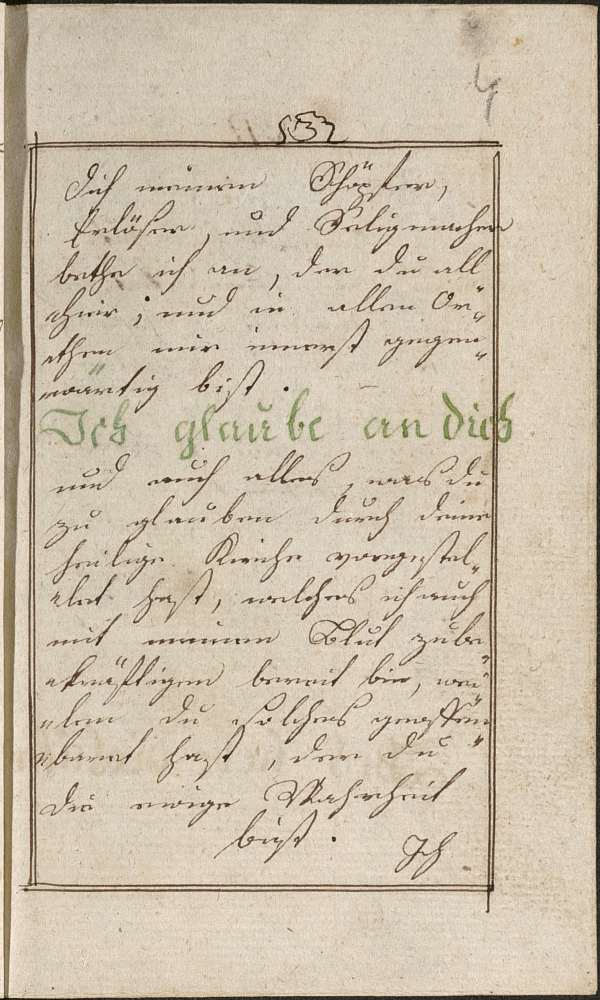 4
3
Dich meinen Schöpfer,
Erlöser, und Seligmacher
bethe ich an, der du all
hier; und in allen Or„
„then mir innerst gegen„
„wärtig bist.
Ich glaube an dich
und auch alles, was du
zu glauben durch deine
heilige Kirche vorgestel„
„let hast, welches ich auch
mit meinem Blut zube„
„kräftigen bereit bin, wei„
„len du solches geoffen„
„baret hast, der du
die ewige Wahrheit
bist.
Ich